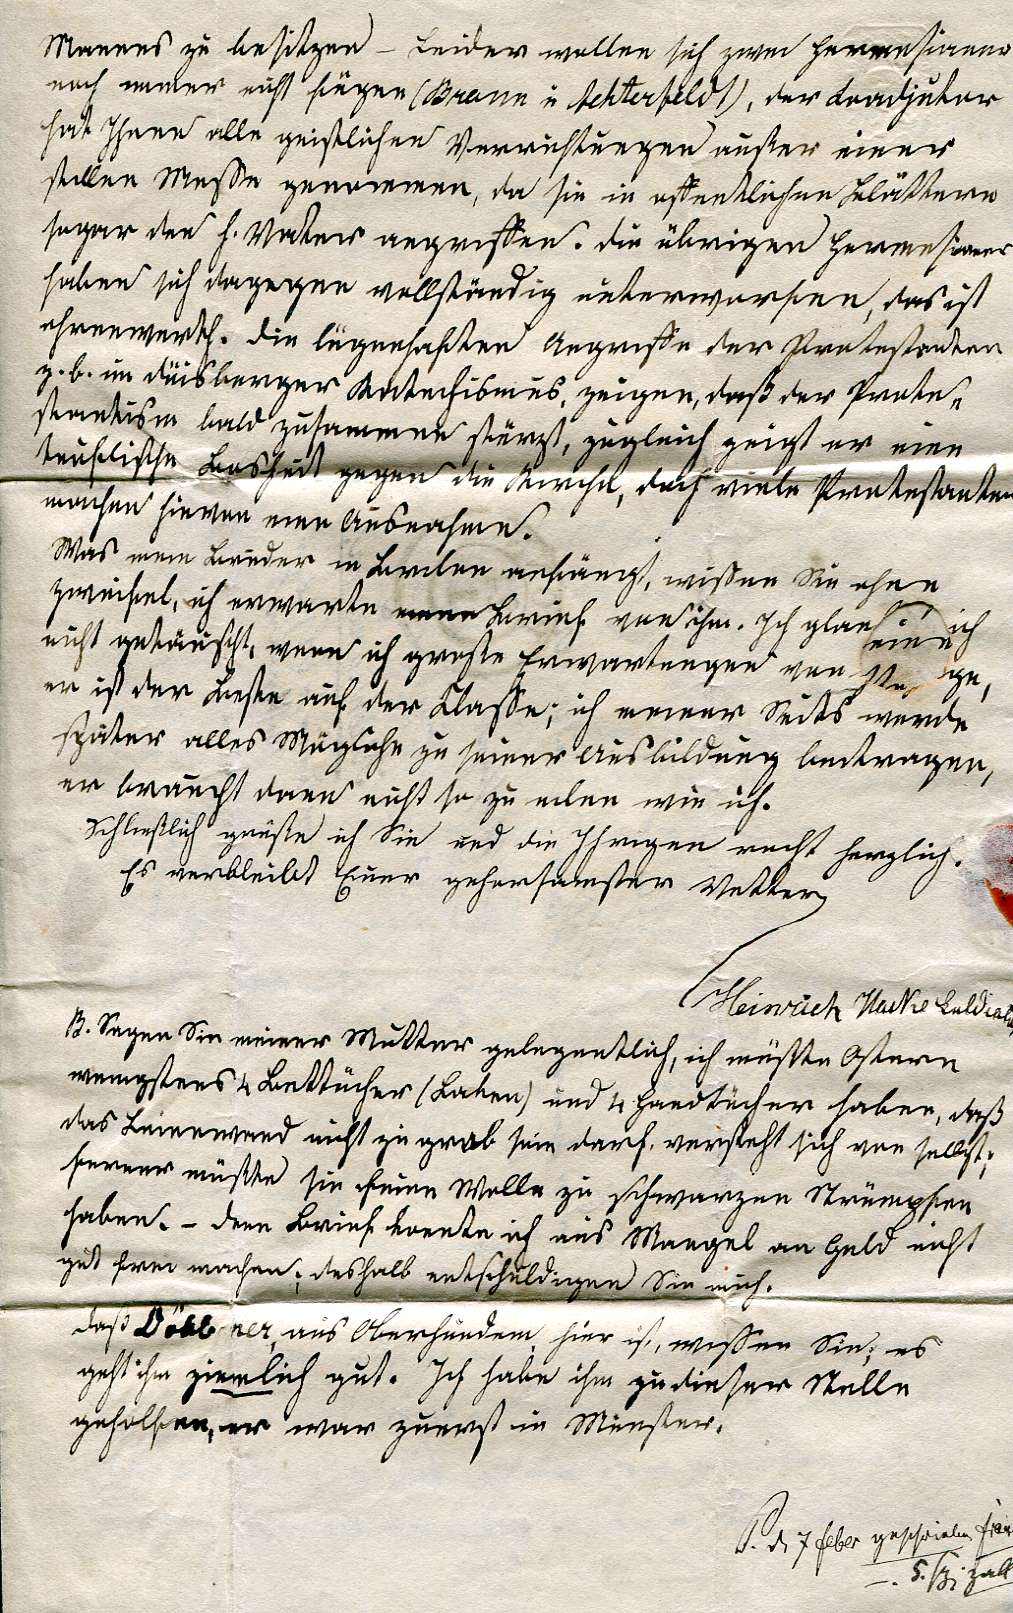 Mannes zu besitzen – Leider wollen sich zwei Hermesianer
noch immer nicht fügen (Braun u Achterfeldt), der Coadjutor
hat Ihnen alle geistlichen Verrichtungen außer einer
stillen Messe genommen, da sie in öffentlichen Blättern
sogar den h. Vater angreiffen. Die übrigen Hermesianer
haben sich dagegen vollständig unterworfen, das ist
ehrenwerth. Die lügenhaften Angriffe der Protestanten
z. b. im Duisberger Katechismus, zeigen, daß der Prote=
stantism bald zusammen stürzt, zugleich zeigt er eine
teuflische Bosheit gegen die Kirche, doch viele Protestanten
machen hievon eine Ausnahme.
Was mein Bruder in Brilon anfängt, wissen Sie ohne
Zweifel, ich erwarte einen Brief von ihm. Ich glaube ich
nicht getäuscht, wenn ich große Erwartungen von
er ist der Beste auf der Classe; ich meiner Seits werde
später alles Mögliche zu seiner Ausbildung beitragen,
er braucht dann nicht so zu eilen wie ich.
Schließlich grüße ich Sie und die Ihrigen recht herzlich.
Es verbleibt Euer gehorsamster Vetter
Heinrich
B. Sagen Sie meiner Mutter gelegentlich, ich müßte Ostern
wenigstens 4 Bettücher (Laken) und 4 Handtücher haben, daß
das Leinenwand nicht zu grob sein darf, versteht sich von selbst;
ferner müßte sie feine Wolle zu schwarzen Strümpfen
haben. – Den Brief konnte ich aus Mangel an Geld nicht
gut frei machen; deshalb entschuldigen Sie mich.
Daß aus Oberhundem hier ist, wissen Sie; es
geht ihm ziemlich gut. Ich habe ihm zu dieser Stelle
geholfen, er war zuerst in Münster.
P. d 7 feber geschrieben